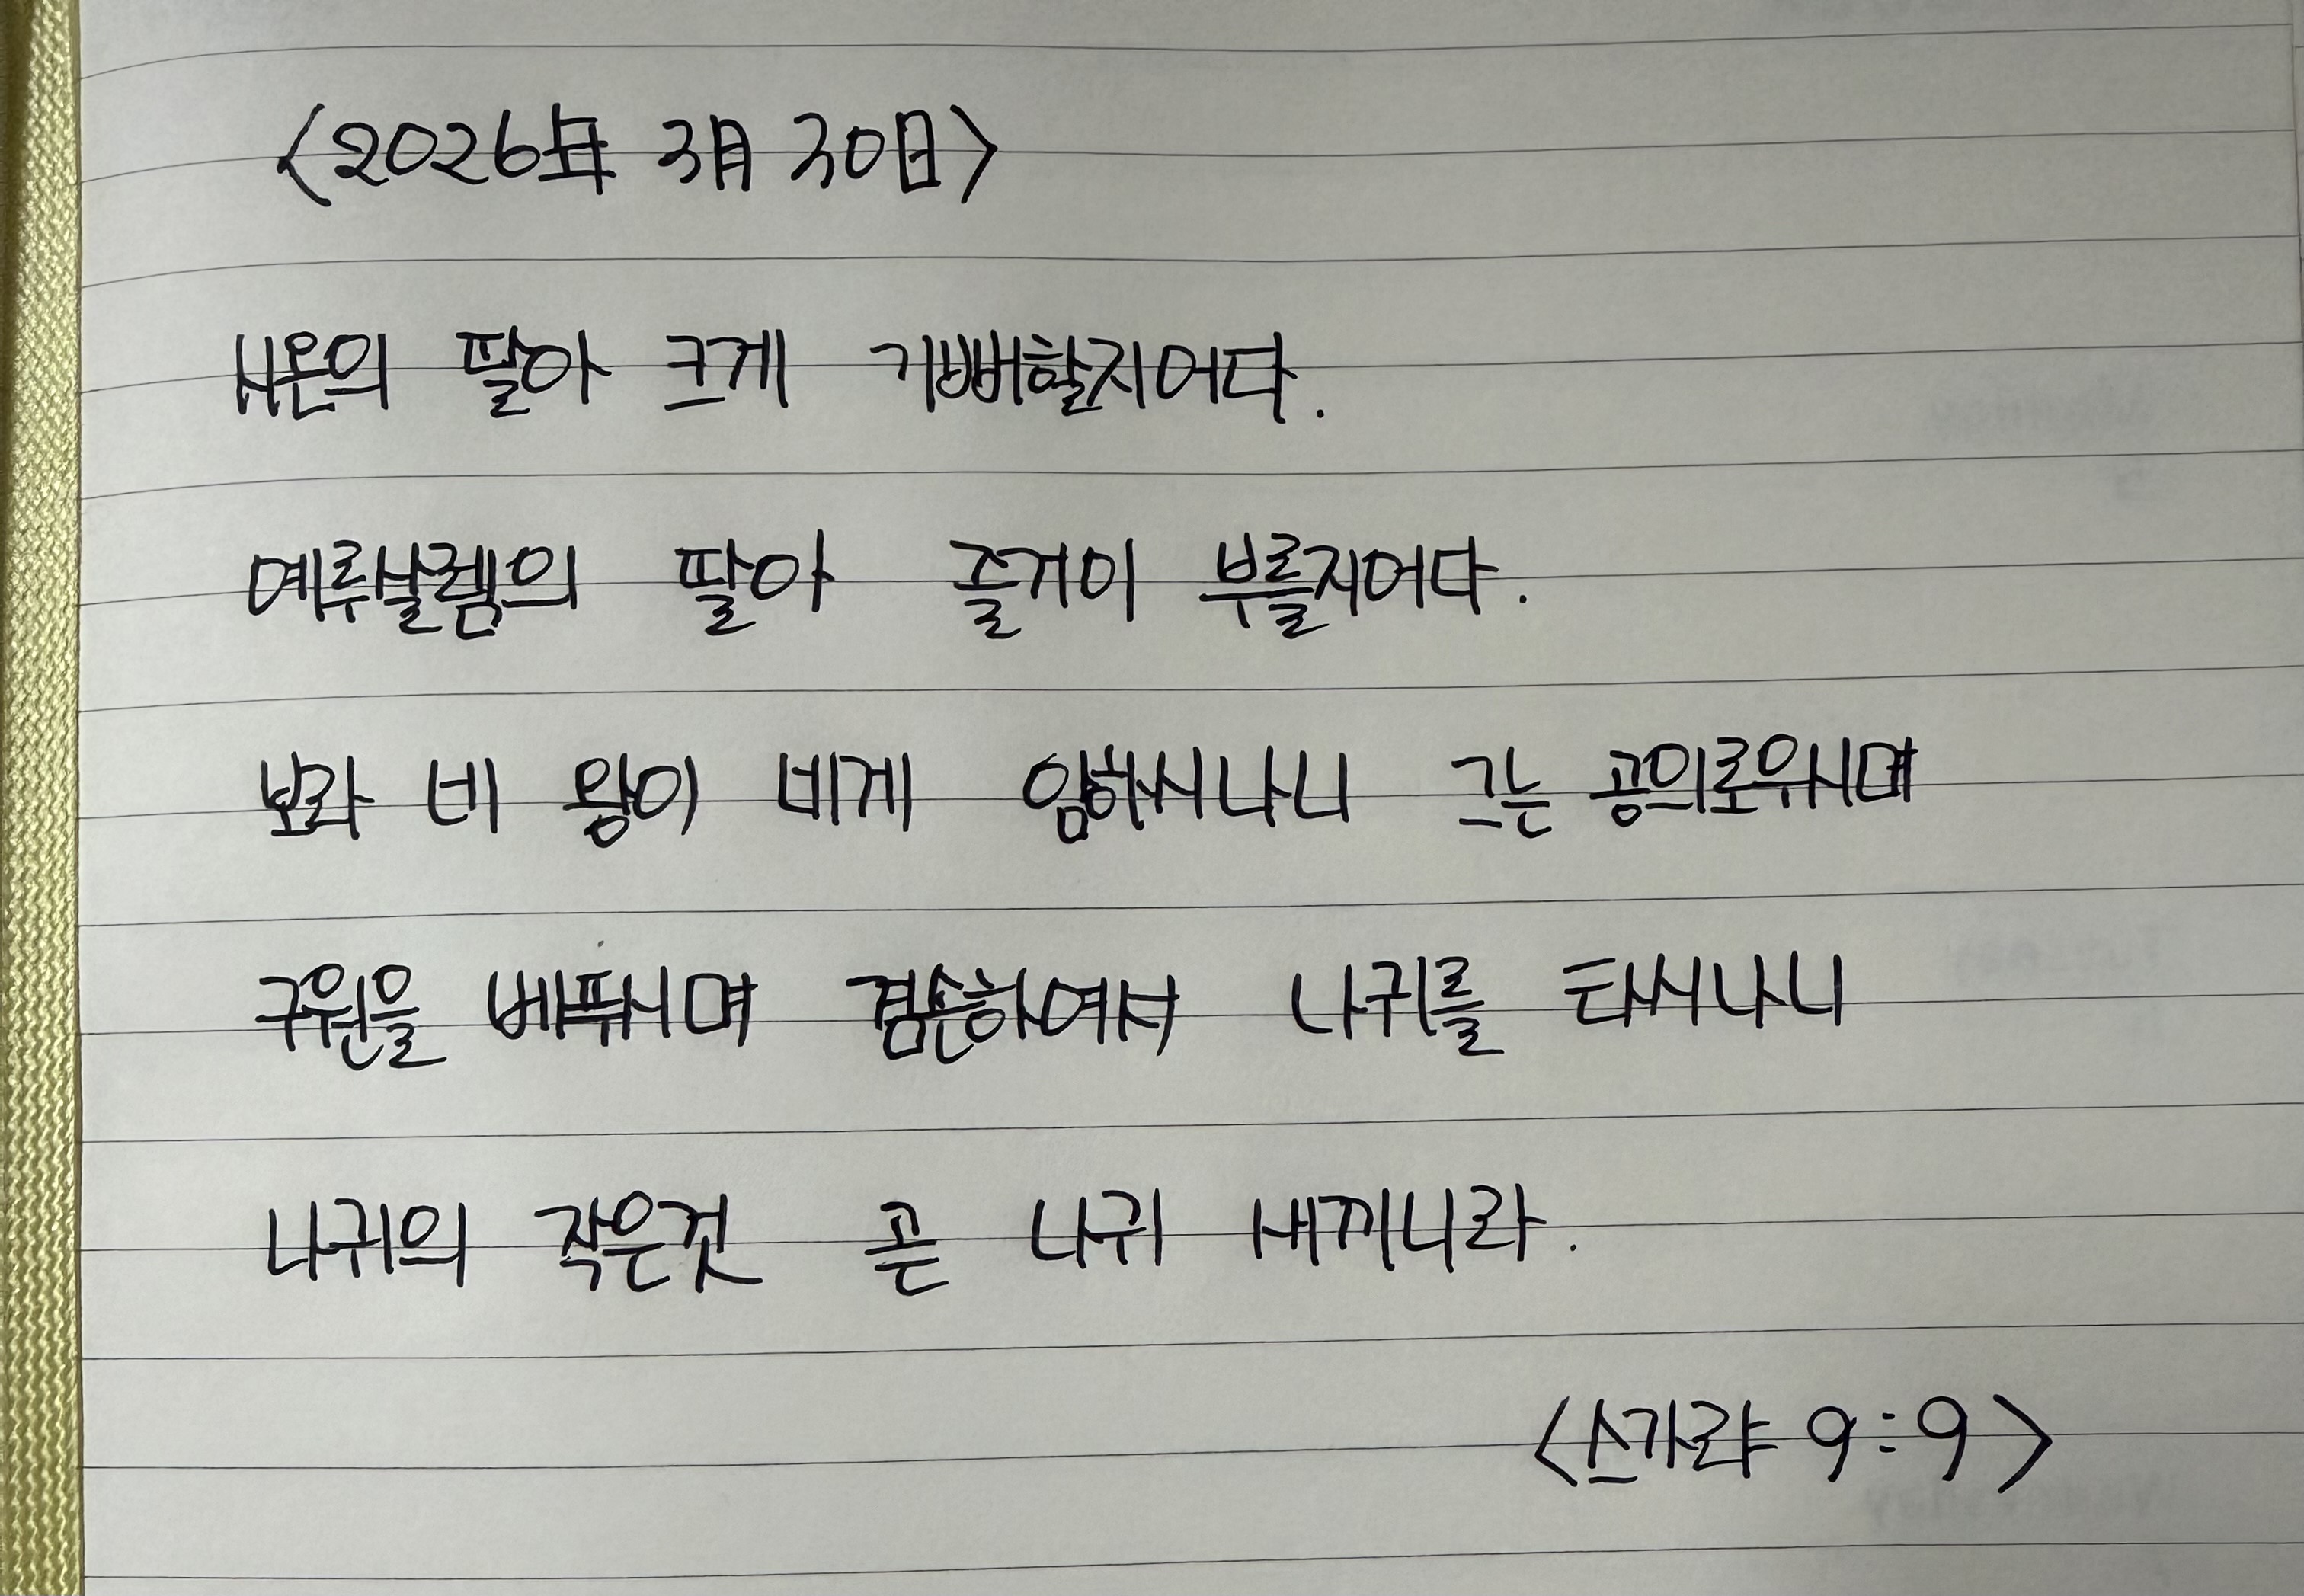 <2026年 3月 30日>
시온의 딸아 크게 기뻐할지어다.
예루살렘의 딸아 즐거이 부를지어다.
보라 네 왕이 네게 임하시나니 그는 공의로우시며
구원을 베푸시며 겸손하여서 나귀를 타시나니
나귀의 작은것 곧 나귀 새끼니라.
<스가랴 9:9>